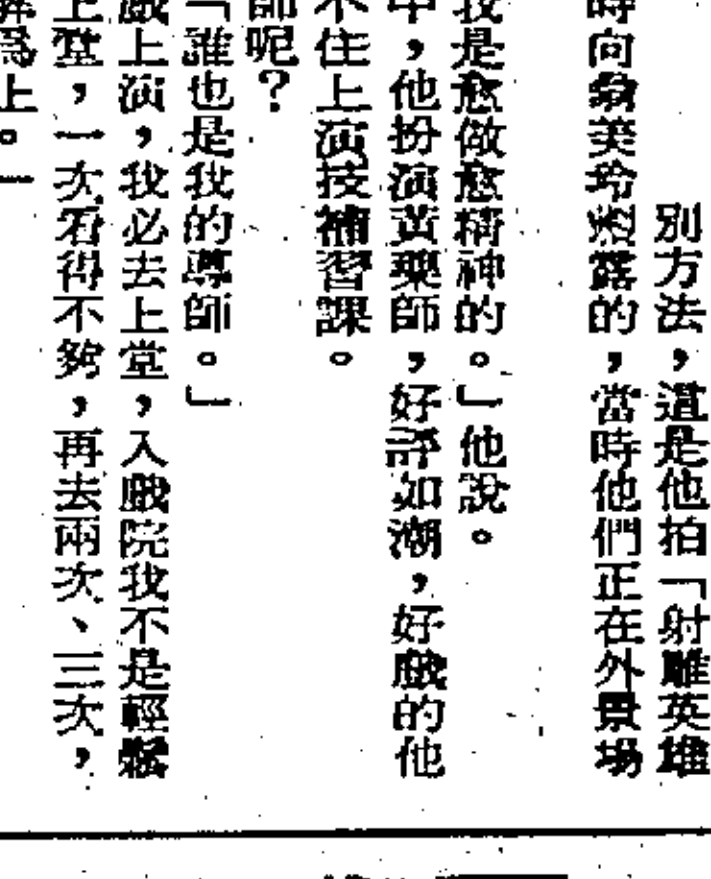 別方法，這是他拍「射雕英雄
時向翁美玲煭露的，當時他們正在外景場
我是愈做愈精神的。」他說。
中，他扮演黃藥師，好評如潮，好戲的他
不住上演技補習課。
師呢？
「誰也是我的導師。」
戲上演，我必去上堂，入戲院我不是輕鬆
上堂，一次看得不夠，再去兩次、三次，
解爲上。」